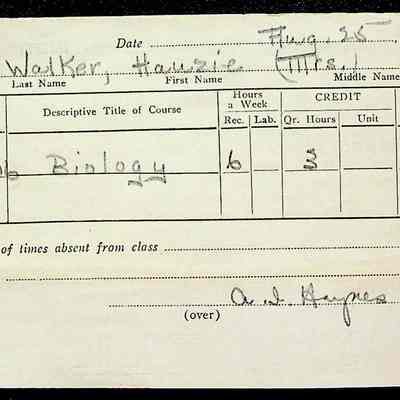 Date Aug. 25
Walker, Hauzie (Mrs.)
Last Name First Name Middle Name
Descriptive Title of Course Hours a Week CREDIT
Rec. Lab. Qr. Hours Unit
Biology 6 3
of times absent from class
A. D. Haynes
(over)